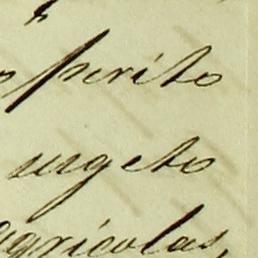 perito
urgeto
agricolas,